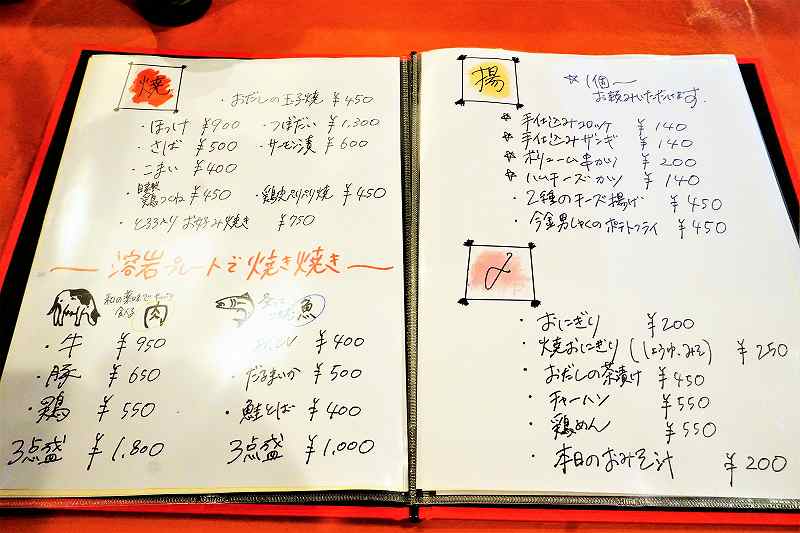 焼
・おだしの玉子焼 ¥450
・ほっけ ¥900 ・つぼだい ¥1,300
・さば ¥500 ・サーモン漬 ¥600
・こまい ¥400
・自家製 鶏つくね ¥450 ・鶏皮パリパリ焼 ¥450
・とろろ入り お好み焼き ¥750
溶岩プレートで焼き焼き
肉
魚
・牛 ¥950
¥400
・豚 ¥650
・だるまいか ¥500
・鶏 ¥550
・鮭とば ¥400
3点盛 ¥1,800
3点盛 ¥1,000
揚
☆1個〜
お頼みいただいます。
☆手仕込みコロッケ ¥140
☆手仕込みザンギ ¥140
☆ボリューム串カツ ¥200
☆ハムチーズカツ ¥140
・2種のチーズ揚げ ¥450
・今金男しゃくのポテトフライ ¥450
〆
・おにぎり ¥200
・焼おにぎり (しょうゆ・みそ) ¥250
・おだしの茶漬け ¥450
・チャーハン ¥550
・鶏めん ¥550
・本日のおみそ汁 ¥200